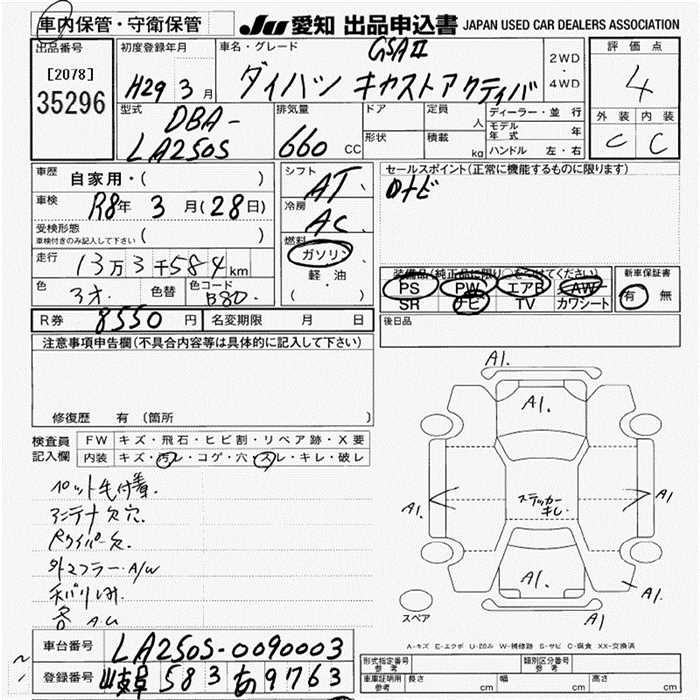 車内保管・守衛保管
JU 愛知 出品申込書 JAPAN USED CAR DEALERS ASSOCIATION
出品番号
[2078]
35296
初度登録年月
H29 3月
車名・グレード
GSAⅡ
ダイハツ キャストアクティバ
2WD
・
4WD
評価点
4
外装 内装
C C
型式
DBA-
LA250S
排気量
660 CC
ドア
形状
定員
人
積載
kg
ディーラー・並行
モデル年式 年
ハンドル 左・右
車歴
自家用・( )
車検
R8年 3月(28日)
受検形態
車検付きのみ記入して下さい
( )
走行
13万3千584km
色
色替
色コード
シフト
AT.
冷房
AC.
燃料
ガソリン
軽油
( ・ )
セールスポイント(正常に機能するものに限ります)
ロナビ
装備品(純正品に限り○をつけてください)
PS PW エアB AW
SR ナビ TV カワシート
新車保証書
有 無
R券 8550円
名変期限 月 日
後日品
注意事項申告欄(不具合内容等は具体的に記入して下さい)
修復歴 有 〔箇所
検査員
記入欄
FW キズ・飛石・ヒビ割・リペア跡・X要
内装 キズ・汚レ・コゲ・穴・スレ・キレ・破レ
ペット毛付着.
アンテナ欠穴.
Rワイパー欠.
外マフラー.A/W
各 A.U
A1.
A1.
A1.
A1.
ステッカー
キレ.
A1.
A1.
A1.
スペア
A-キズ E-エクボ U-凹み W-補修跡 S-サビ C-腐食 XX-交換済
車台番号
LA250S-0090003
登録番号
岐阜 583 あ 9763
型式指定番号
参考
類別区分番号
参考
車庫証明用
参考
長さ cm
幅 cm
高さ cm